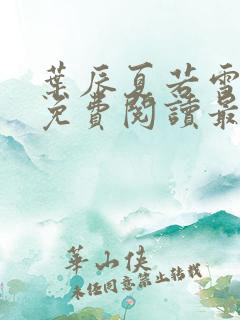 葉辰夏若雪
免費閱讀最
華山俠
未經同意禁止轉載